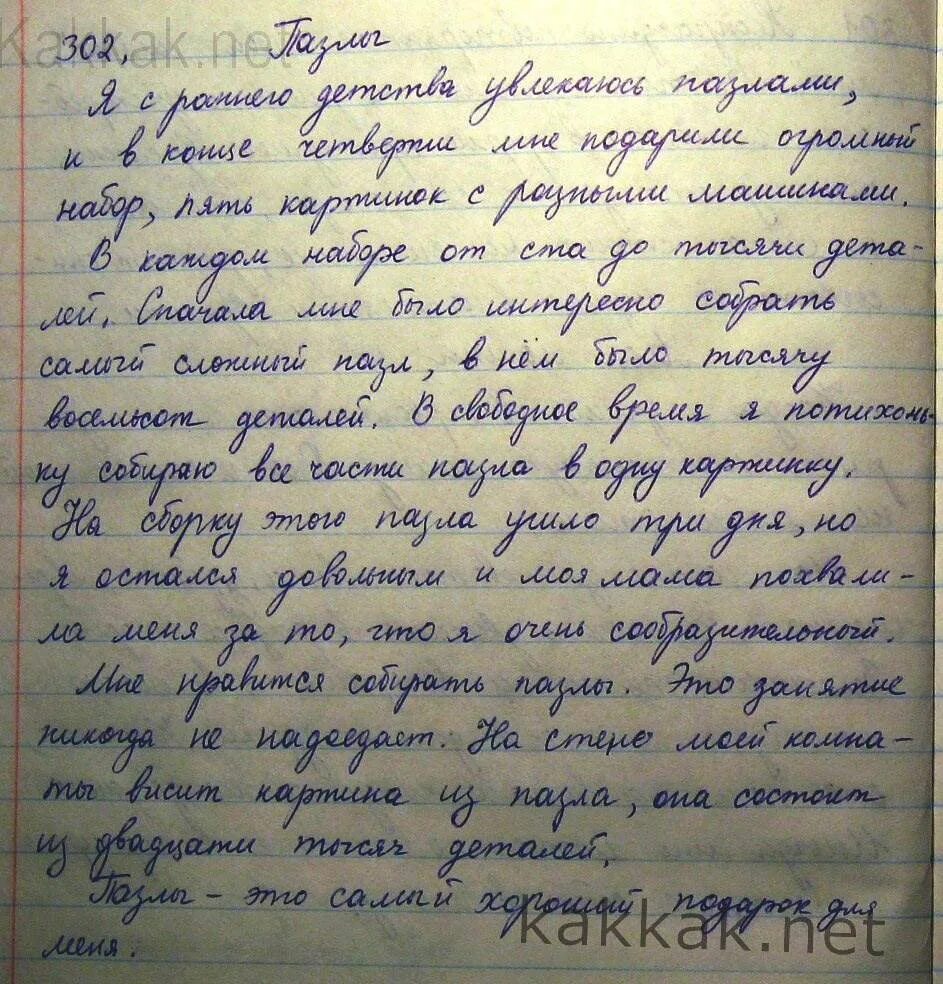 Kakkak.net
302. Пазлы
Я с раннего детства увлекаюсь пазлами,
и в конце четверти мне подарили огромный
набор, пять картинок с разными машинами.
В каждом наборе от ста до тысячи дета-
лей. Сначала мне было интересно собрать
самый сложный пазл, в нём было тысячу
восемьсот деталей. В свободное время я потихонь-
ку собираю все части пазла в одну картинку.
На сборку этого пазла ушло три дня, но
я остался довольным и моя мама похвали-
ла меня за то, что я очень сообразительный.
Мне нравится собирать пазлы. Это занятие
никогда не надоедает. На стене моей комна-
ты висит картина из пазла, она состоит
из двадцати тысяч деталей.
Пазлы – это самый хороший подарок для
меня.
kakkak.net